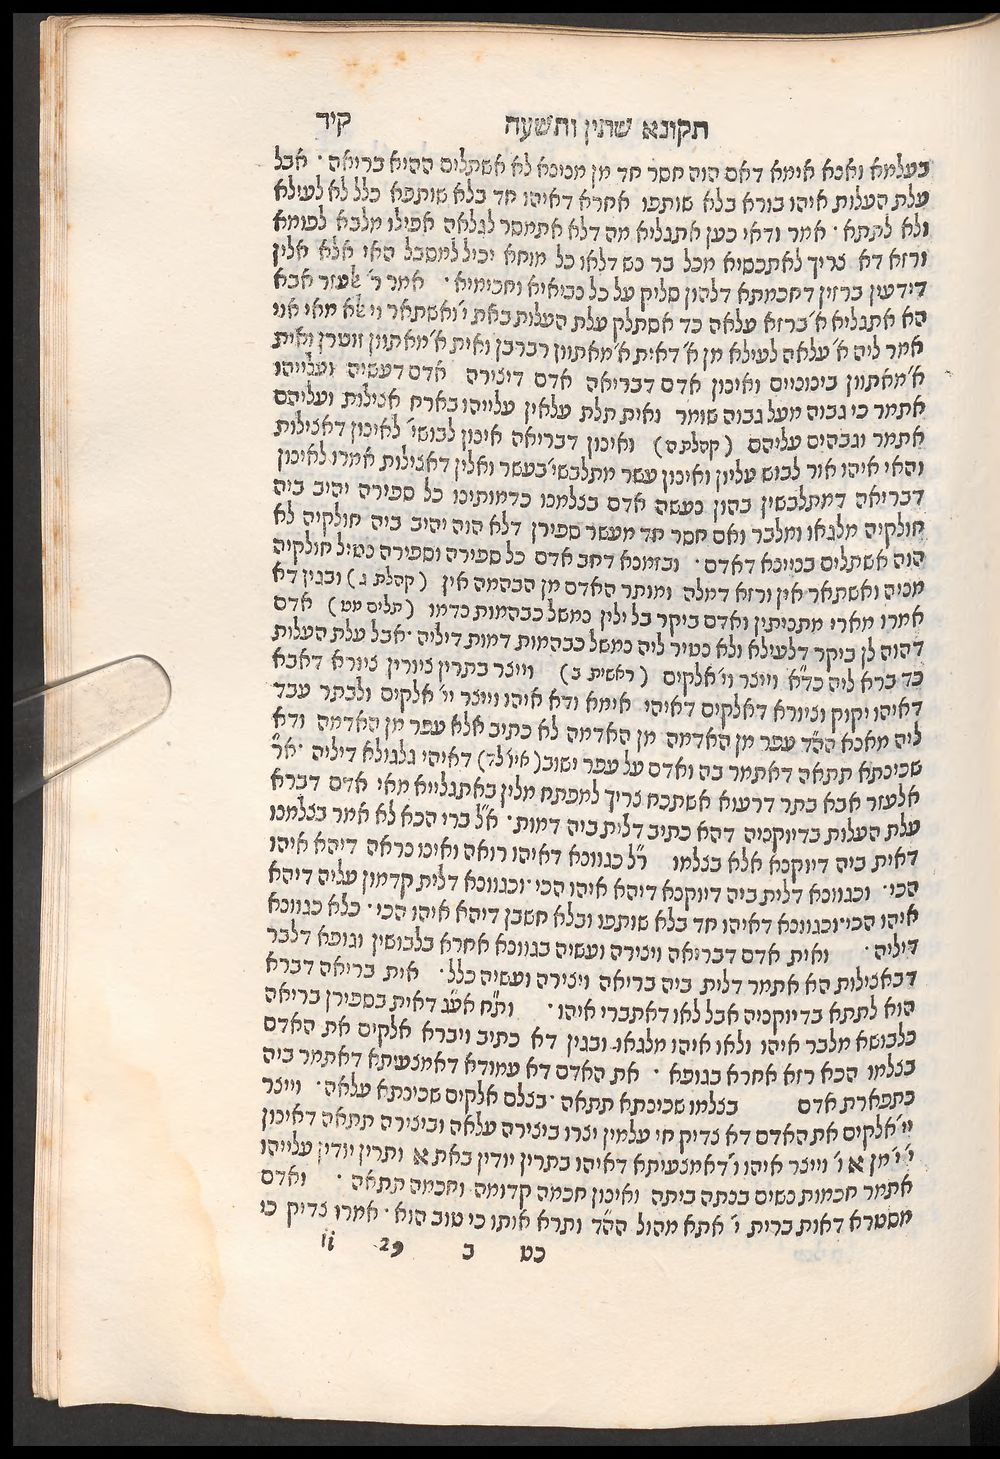 תקונא שתין ותשעה קיד
בעלמא ואנא אימא דאם הוה חסר חד מן מנינא לא אשתלים ההיא בריאה · אבל
עלת העלות איהו בורא בלא שותפו אחרא דאיהו חד בלא שותפא כלל לא לעילא
ולא לתתא · אמר ודאי כען אתגליא מה דלא אתמסר לגלאה אפילו מלבא לפומא
ורזא דא צריך לאתכסיא מכל בר נש דלאו כל מוחא יכיל למסבל האי אלא אלין
דידעין ברזין דחכמתא דלהון סליק על כל נביאיא וחכימיא · אמר ר' אלעזר אבא
הא אתגליא א' ברזא עלאה כד אסתלק עלת העלות באת י' ואשתאר וי אלא מאי אני
אמר ליה א' עלאה לעילא מן א' דאית א' מאתוון רברבן ואית א' מאתוון זוטרן ואית
א' מאתוון בינוניים ואינון אדם דבריאה אדם דיצירה אדם דעשיה ועלייהו
אתמר כי גבוה מעל גבוה שומר ואית תלת עלאין עלייהו בארח אצילות ועליהם
אתמר וגבהים עליהם (קהלת ה) ואינון דבריאה אינון לבושי' לאינון דאצילות
והאי איהו אור לבוש עליון ואינון עשר מתלבשי' בעשר ואלין דאצילות אמרו לאינון
דבריאה דמתלבשין בהון נעשה אדם בצלמנו כדמותינו כל ספירה יהיב ביה
חולקיה מלגאו ומלבר ואם חסר חד מעשר ספירן דלא הוה יהיב ביה חולקיה לא
הוה אשתלים בניינא דאדם · ובזמנא דחב אדם כל ספירה וספירה נטיל חולקיה
מניה ואשתאר אין ורזא דמלה ומותר האדם מן הבהמה אין (קהלת ג) ובגין דא
אמרו מארי מתניתין ואדם ביקר בל ילין נמשל כבהמות נדמו (תלים מט) אדם
דהוה לן ביקר דלעילא ולא נטיר ליה נמשל כבהמות דמות דיליה · אבל עלת העלות
כד ברא ליה כד"א וייצר וי' אלקים (ראשית ב) וייצר בתרין ציורין ציורא דאבא
דאיהו יקוק וציורא דאלקים דאיהי אימא ודא איהו וייצר יי' אלקים ולבתר עבד
ליה מאנא הה"ד עפר מן האדמה מן האדמה לא כתיב אלא עפר מן האדמה ודא
שכינתא תתאה דאתמר בה ואדם על עפר ישוב (איו' לד) דאיהי גלגולא דיליה · א"ר
אלעזר אבא בתר דרעוא אשתכח צריך למפתח מלין באתגלייא מאי אדם דברא
עלת העלות בדיוקניה דהא כתיב דלית ביה דמות · א"ל ברי הכא לא אמר בצלמנו
דאית ביה דיוקנא אלא בצלמו ר"ל כגוונא דאיהו רואה ואינו נראה דיהא איהו
הכי · וכגוונא דלית ביה דיוקנא דיהא איהו הכי · וכגוונא דלית קדמון עליה דיהא
איהו הכי · וכגוונא דאיהו חד בלא שותפו ובלא חשבן דיהא איהו הכי · כלא כגוונא
דיליה · ואית אדם דבריאה ויצירה ועשיה בגוונא אחרא בלבושין וגופא דלבר
דבאצילות הא אתמר דלית ביה בריאה ויצירה ועשיה כלל · אית בריאה דברא
הוא לתתא בדיוקניה אבל לאו דאתברי איהו · ות"ח אע"ג דאית בספירן בריאה
כלבושא מלבר איהו ולאו איהו מלגאו · ובגין דא כתיב ויברא אלקים את האדם
בצלמו הכא רזא אחרא בגופא · את האדם דא עמודא דאמצעיתא דאתמר ביה
כתפארת אדם בצלמו שכינתא תתאה · בצלם אלקים שכינתא עלאה · וייצר
יי' אלקים את האדם דא צדיק חי עלמין יצרו ביצירה עלאה וביצירה תתאה דאינון
י' י' מן א ו' וייצר איהו ו' דאמצעיתא דאיהו בתרין יודין באת א ותרין יודין עלייהו
אתמר חכמות נשים בנתה ביתה ואינון חכמה קדומה וחכמה תתאה · ואדם
מסטרא דאות ברית ו' אתא מהול הה"ד ותרא אותו כי טוב הוא · אמרו צדיק כי
כט ב 29 ii